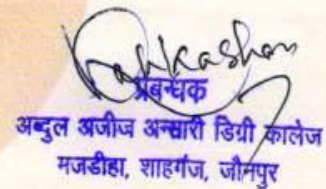 प्रबन्धक
अब्दुल अजीज अन्सारी डिग्री कालेज
मजडीहा, शाहगंज, जौनपुर